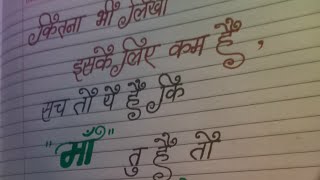 कितना भी लिखो
इसके लिए कम है,
सच तो ये है कि
"माँ" तु है तो